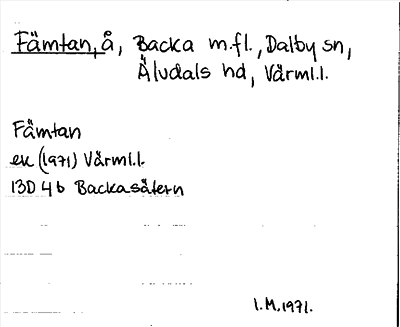 Fämtan, å, Backa m.fl., Dalby sn,
Äludals hd, Värml.l.
Fämtan
ek (1971) Värml.l.
13D 4b Backasätern
I.M.1971.